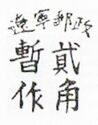 遼寧郵政
暫作
貳角